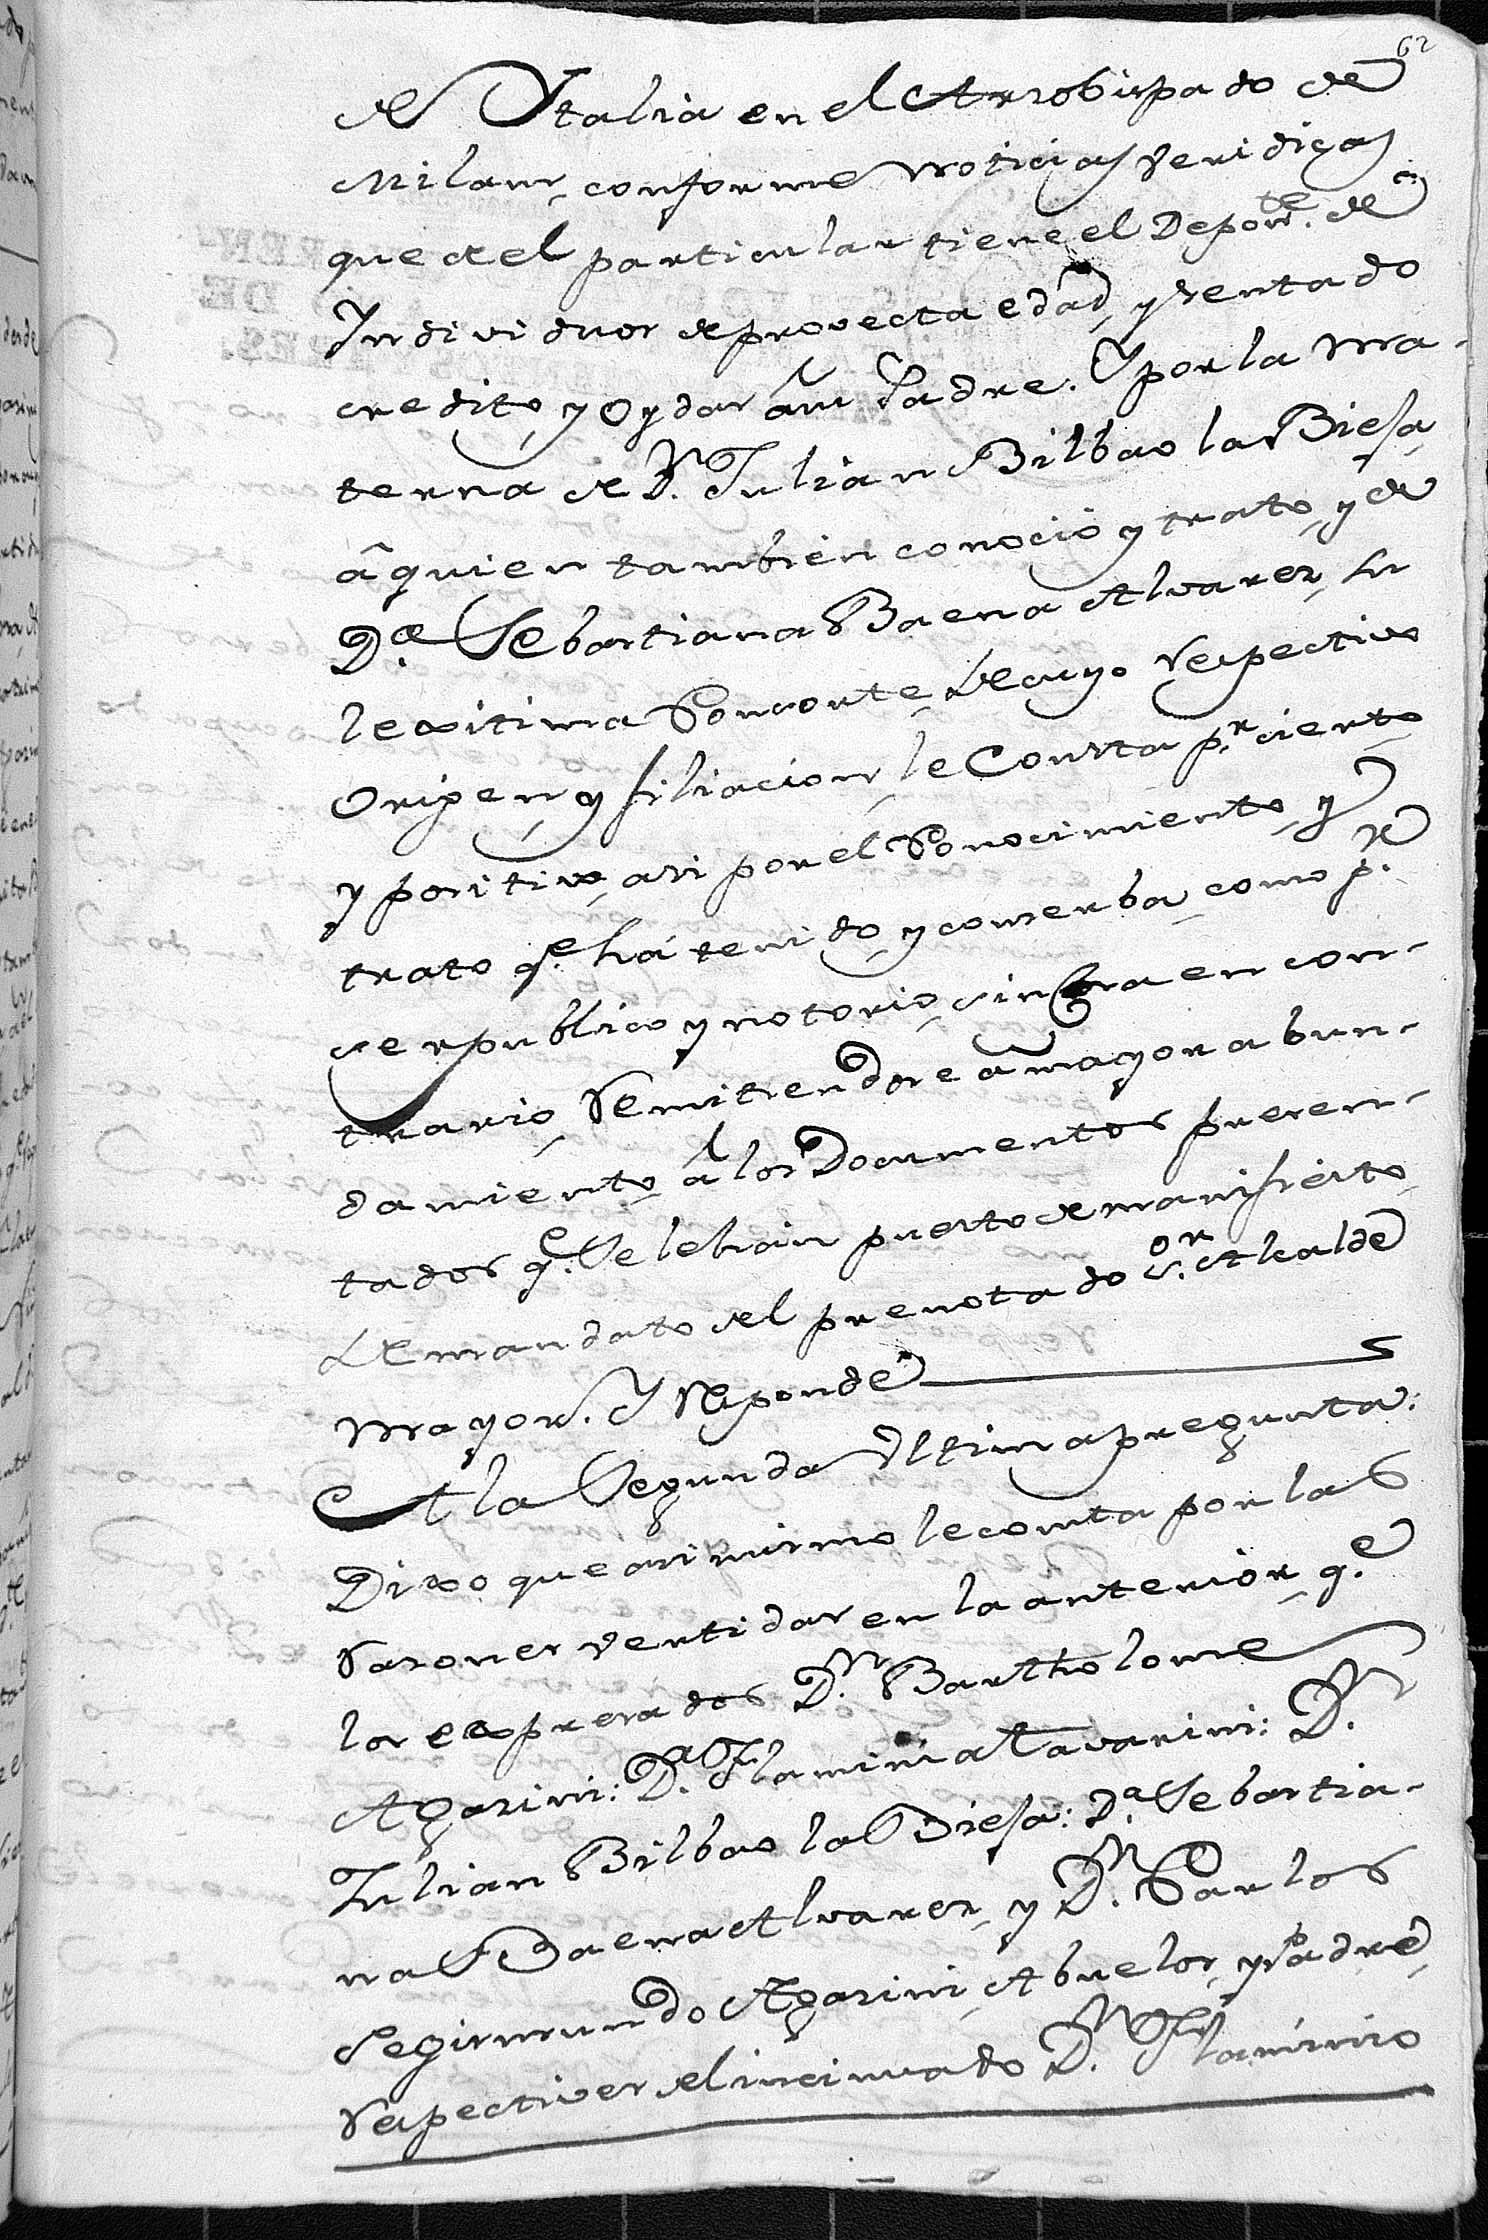 62
de Italia en el Arzobispado de
Milan, conforme noticias veridicas
que del particular tiene el Depon.te de
Yndividuos de provecta edad, y sentado
credito, y Oydas â su Padre. Y por la Ma-
terna de D.n Julian Bilbao la Biesa,
â quien tambien conoció y trato, y de
D.a Sebastiana Baena Alvarez, su
lexitima Consorte, de cuyo respectivo
Origen, y filiacion, le Consta p.r cierto
y positivo, asi por el Conocimiento, y
trato q.e há tenido, y conserba, como p.r
ser publico y notorio, sin cosa en con-
trario, Remitiendose â mayor abun-
damiento, â los Documentos presen-
tados q.e Se le han puesto de manifiesto,
de mandato del prenotado S.or Alcalde
mayor. Y Responde
A la Segunda Ultima pregunta:
Dixo que asi mismo le consta por las
razones vertidas en la anterior, q.e
los expresados D.n Bartholome
Agazini: D.a Flaminia Tavarini: D.n
Julian Bilbao la Biesa: D.a Sebastia-
na Baena Alvarez, y D.n Carlos
Segismundo Agazini, Abuelos, y Padre,
respectives del insinuado D.n Flaminio